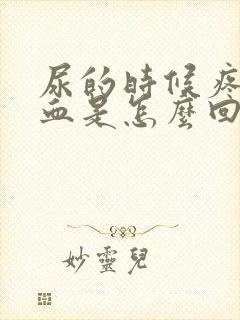 尿的時候疼
血是怎麼回
妙靈兒